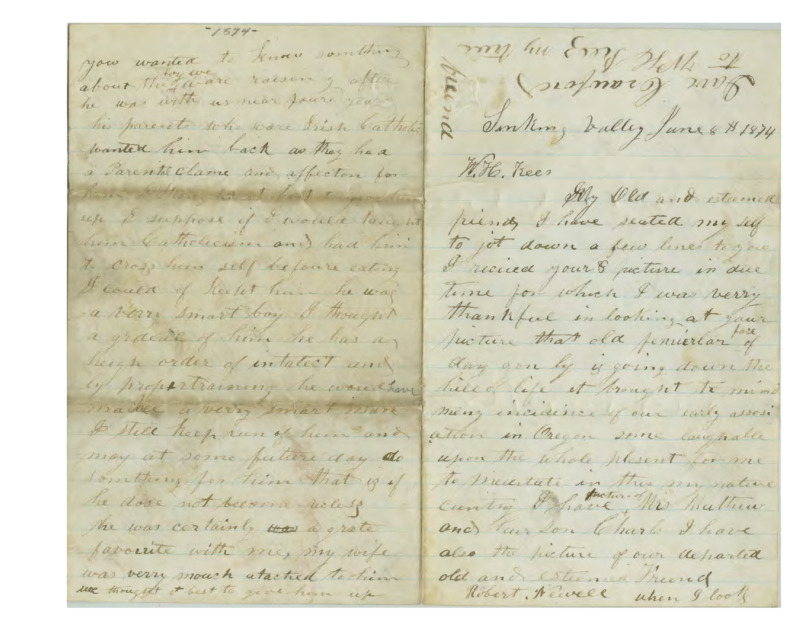 Sinking Valley June 8th 1874
W.H. Rees
My Old and esteemed
friend, I have seated my self
to jot down a few lines to you
I recived your picture in due
time for which I was verry
thankful in looking at your
picture that old femierar face of
day gon by is going down the
hill of life it brought to mind
meny incidence of our early assosi
ation in Oregon some laughable
upon the whole plesent for me
to meditate in this my native
cuntry I have picture of Mis Matthew
and son Charls I have
also the picture of our departed
old and estiemed Friend
Robert Newell when I look
-1874-
you wanted to know something
about the boy we are raesing after
he was with us near foure year
his parents who ware Irish Catholic
wanted him back as they had
a Parentle clame and affecton for
him
up I suppose if I would taught
him Catholicism and had him
to cross him self befoure eating
I could of Keept him he was
a verry smart boy I thought
a grdeal of him he has a
heigh order of intalect and
by proper training he would have
made a verry smart man
I still keep run of him and
may at some future day do
something for him that is if
he dose not become
he was certainly a grate
favourite with me, my wife
was verry mouch atached to him
we thought it best to give him up
Dave Crawford
to W H Reez my true
friend